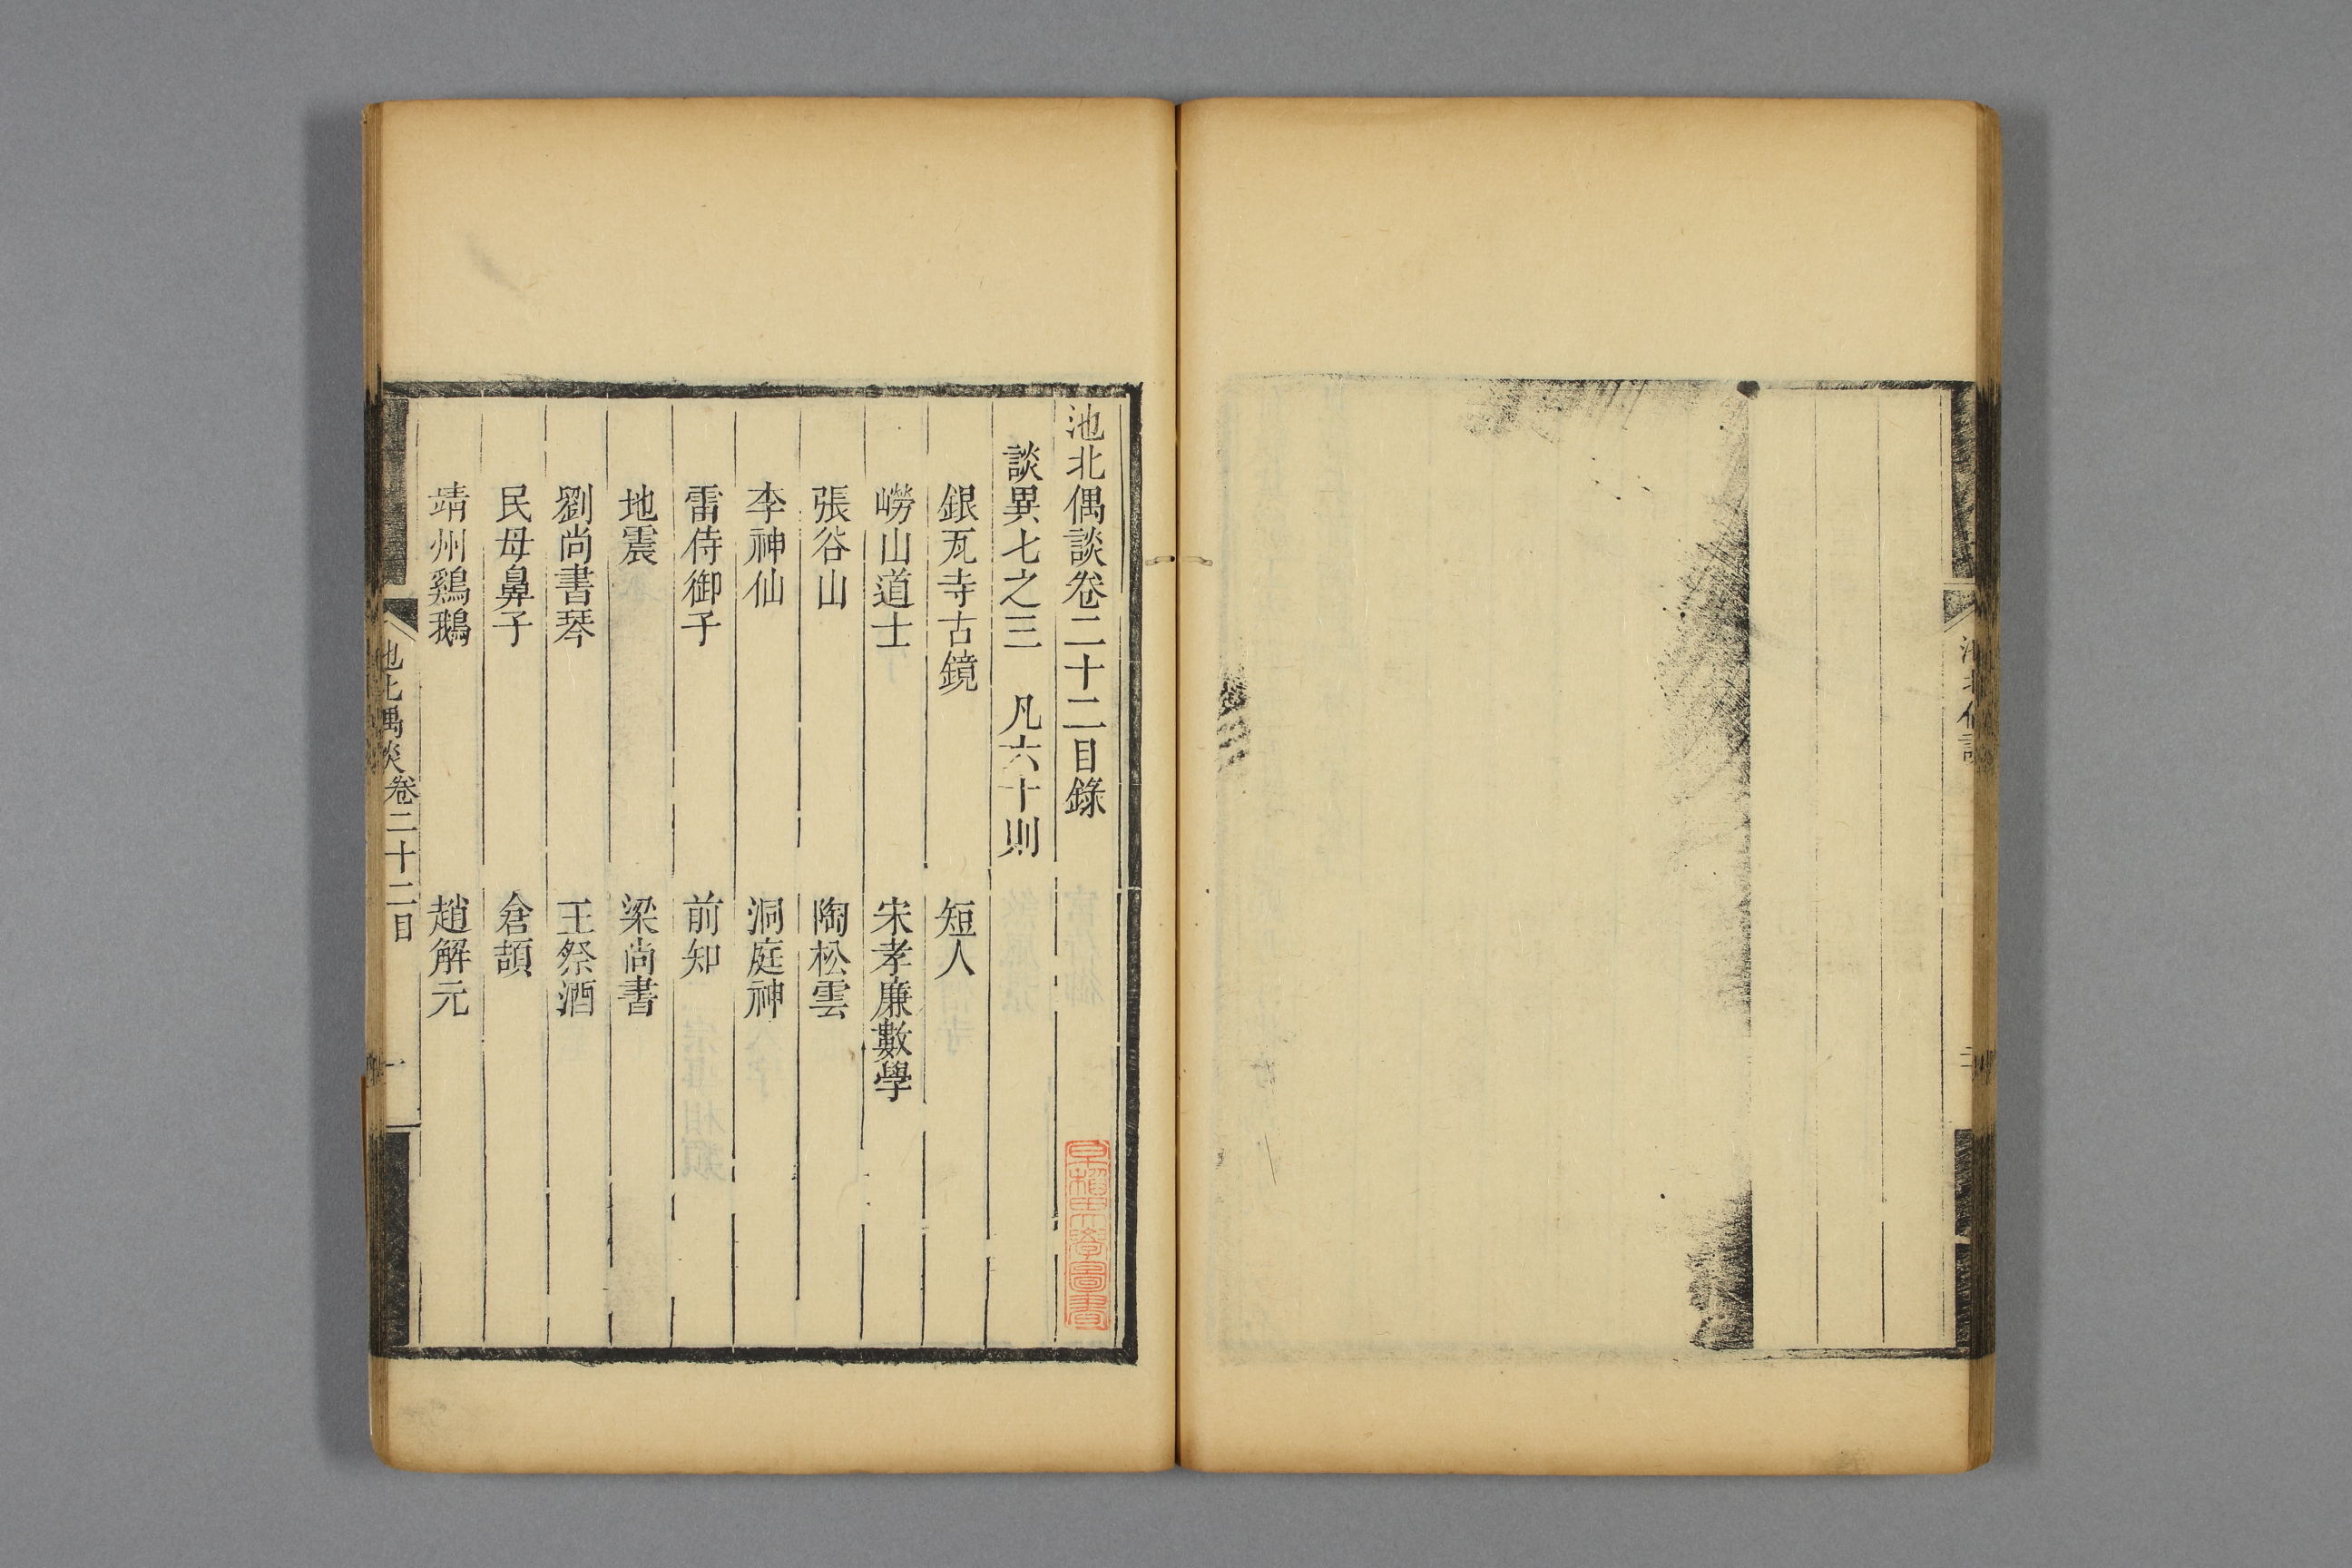 池北偶談卷二十二目錄
談異七之三　凡六十則
銀瓦寺古鏡　短人
嶗山道士　宋孝廉數學
張谷山　陶松雲
李神仙　洞庭神
雷侍御子　前知
地震　梁尚書
劉尚書琴　王祭酒
民母鼻子　倉頡
靖州鷄鵝　趙解元
池北偶談　卷二十二目　一